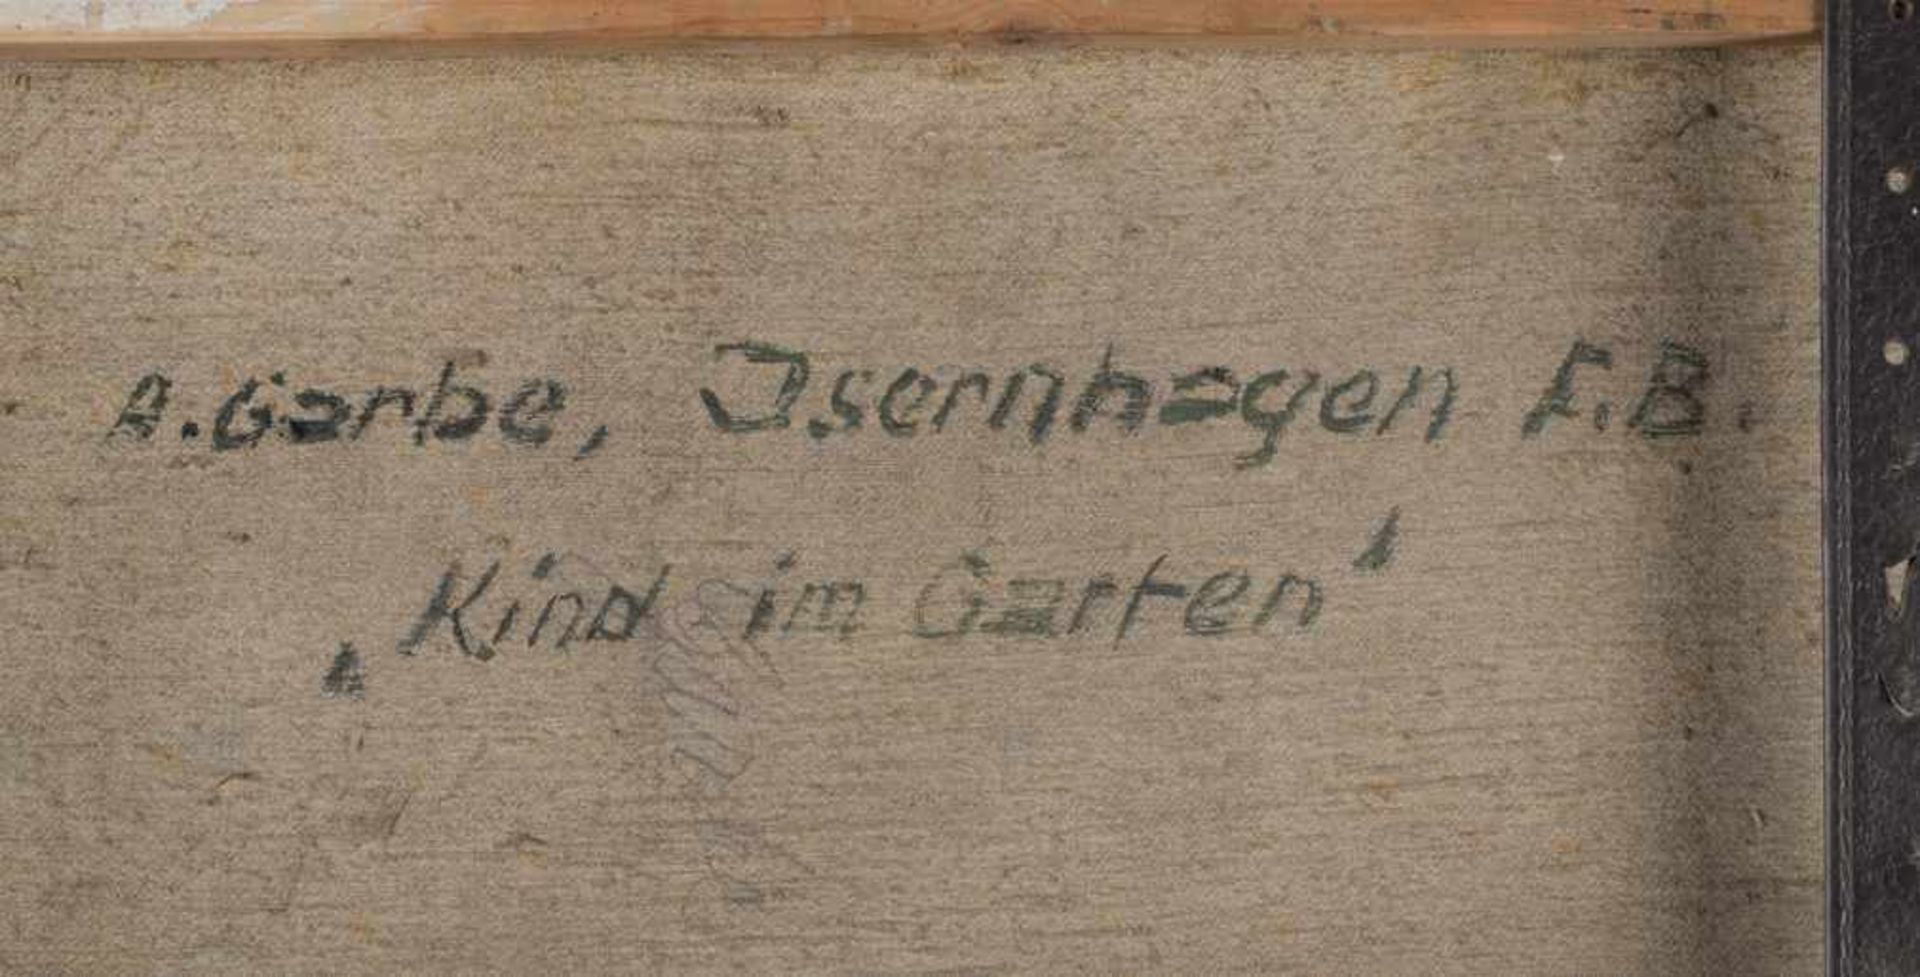 A. Garbe, Isernhagen F.B.
„Kind im Garten"